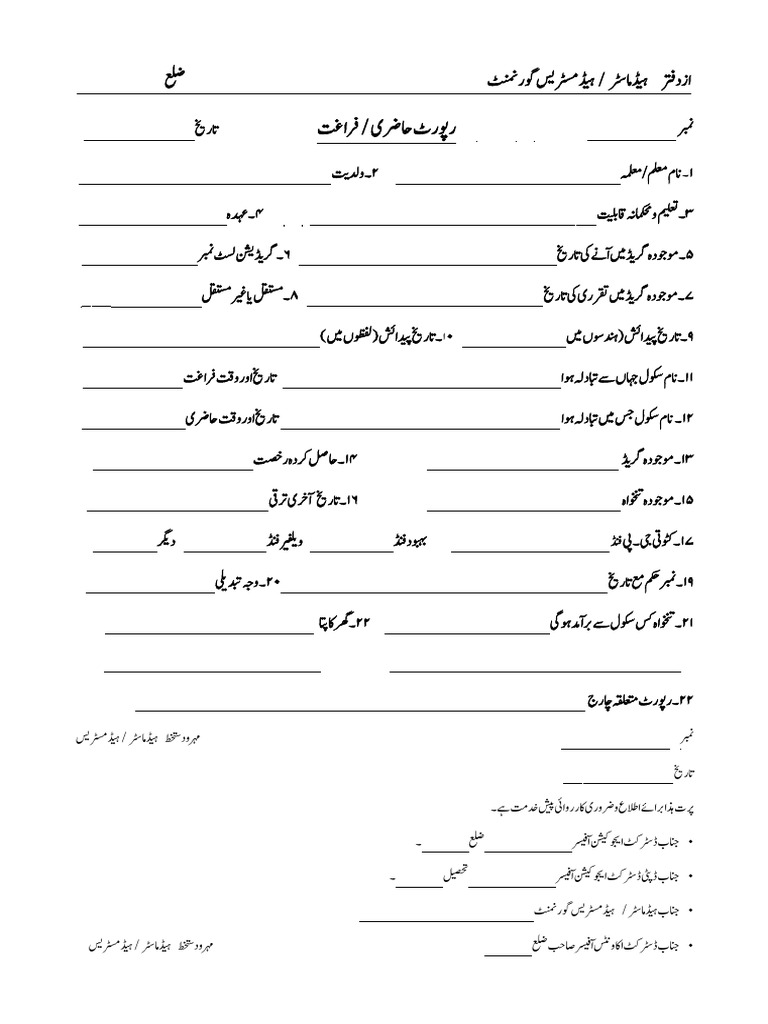 از دفتر ہیڈماسٹر / ہیڈمسٹریس گورنمنٹ ضلع
نمبر رپورٹ حاضری / فراغت تاریخ
۱۔ نام معلم/معلمہ ۲۔ ولدیت
۳۔ تعلیم و محکمانہ قابلیت ۴۔ عہدہ
۵۔ موجودہ گریڈ میں آنے کی تاریخ ۶۔ گریڈیشن لسٹ نمبر
۷۔ موجودہ گریڈ میں تقرری کی تاریخ ۸۔ مستقل یا غیر مستقل
۹۔ تاریخ پیدائش (ہندسوں میں ۱۰۔ تاریخ پیدائش (لفظوں میں)
۱۱۔ نام سکول جہاں سے تبادلہ ہوا تاریخ اور وقت فراغت
۱۲۔ نام سکول جس میں تبادلہ ہوا تاریخ اور وقت حاضری
۱۳۔ موجودہ گریڈ ۱۴۔ حاصل کردہ رخصت
۱۵۔ موجودہ تنخواہ ۱۶۔ تاریخ آخری ترقی
۱۷۔ کٹوتی جی۔پی فنڈ بہبود فنڈ ویلفیر فنڈ دیگر
۱۹۔ نمبر حکم مع تاریخ ۲۰۔ وجہ تبدیلی
۲۱۔ تنخواہ کس سکول سے برآمد ہوگی ۲۲۔ گھر کا پتا
۲۲۔ رپورٹ متعلقہ چارج
نمبر مہر ودستخط ہیڈماسٹر / ہیڈمسٹریس
تاریخ
پرت ہذا برائے اطلاع وضروری کارروائی پیش خدمت ہے۔
• جناب ڈسٹرکٹ ایجوکیشن آفیسر ضلع ۔
• جناب ڈپٹی ڈسٹرکٹ ایجوکیشن آفیسر تحصیل ۔
• جناب ہیڈماسٹر / ہیڈمسٹریس گورنمنٹ
• جناب ڈسٹرکٹ اکاونٹس آفیسر صاحب ضلع مہر ودستخط ہیڈماسٹر / ہیڈمسٹریس